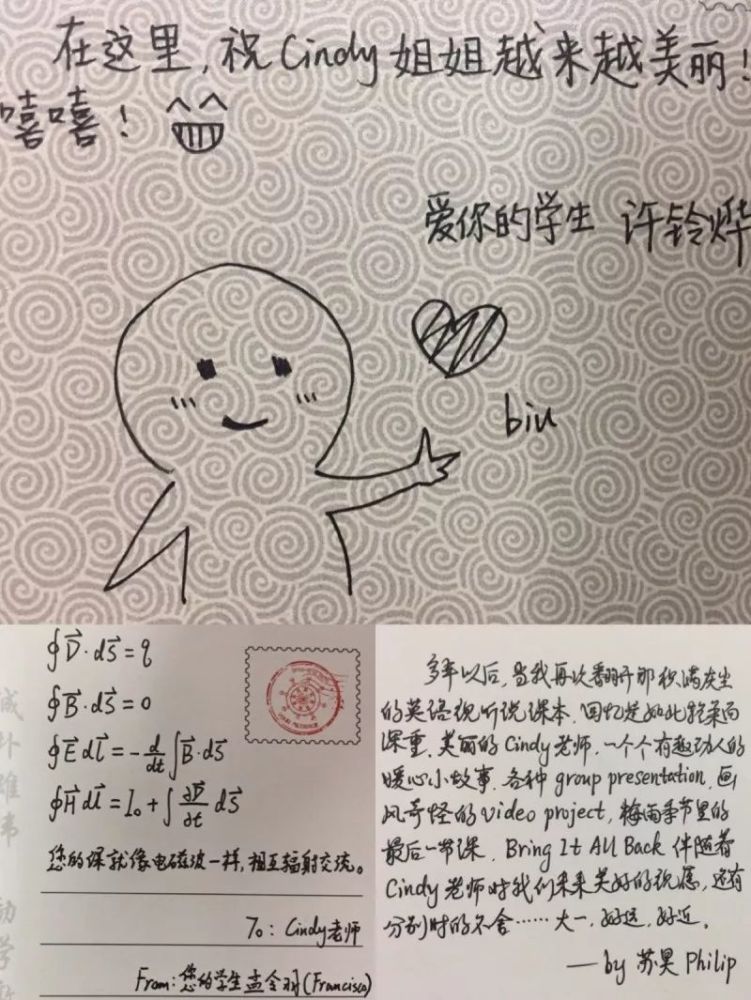 在这里，祝Cindy姐姐越来越美丽！
嘻嘻！
爱你的学生 许铃烨
biu
∮D⃗·dS⃗=q
∮B⃗·dS⃗=0
∮E⃗dl⃗=-d/dt∫B⃗·dS⃗
∮H⃗dl⃗=I₀+∫∂D⃗/∂t dS⃗
您的课就像电磁波一样，相互辐射交流。
To：Cindy老师
From：您的学生孟令羽(Francisco)
多年以后，当我再次翻开那积满灰尘
的英语视听说课本，回忆是如此轻柔而
深重。美丽的Cindy老师，一个个有趣动人的
暖心小故事，各种group presentation，画
风奇怪的video project，梅雨季节里的
最后一节课，Bring It All Back 伴随着
Cindy老师对我们未来美好的祝愿，还有
分别时的不舍……大一，好远，好近。
——by 苏昊 Philip